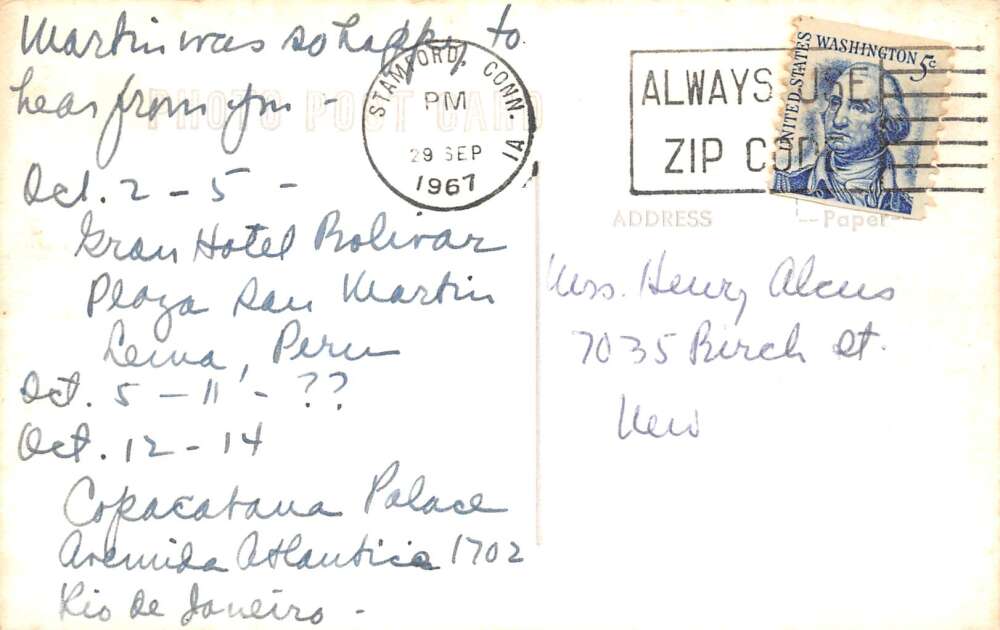 Martin was so happy to
hear from you -
PHOTO POST CARD
Oct. 2 - 5 -
Gran Hotel Bolivar
Plaza San Martin
Lima, Peru
Oct. 5 - 11 - ??
Oct. 12 - 14
Copacabana Palace
Avenida Atlantica 1702
Rio de Janeiro -
STAMFORD, CONN.
PM
29 SEP
1967
1A
ALWAYS USE
ZIP CODE
UNITED STATES
WASHINGTON 5c
ADDRESS
Paper
Mrs. Henry Alcus
7035 Birch St.
New